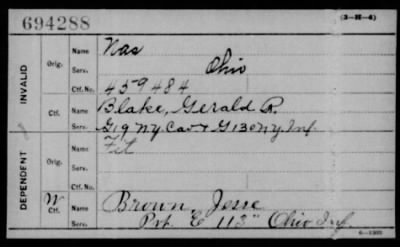 694288
(3-H-4)
INVALID
Orig.
Name Nas
Serv. Ohio
Ctf. No. 459484
Ctf.
Name Blake, Gerald R.
Serv. G 19 NY Cav & G 130 NY Inf
DEPENDENT
Orig.
Name
Serv.
Ctf. No.
W Ctf.
Name Brown, Jesse
Serv. Pvt "E" 113" Ohio Inf
6—1303